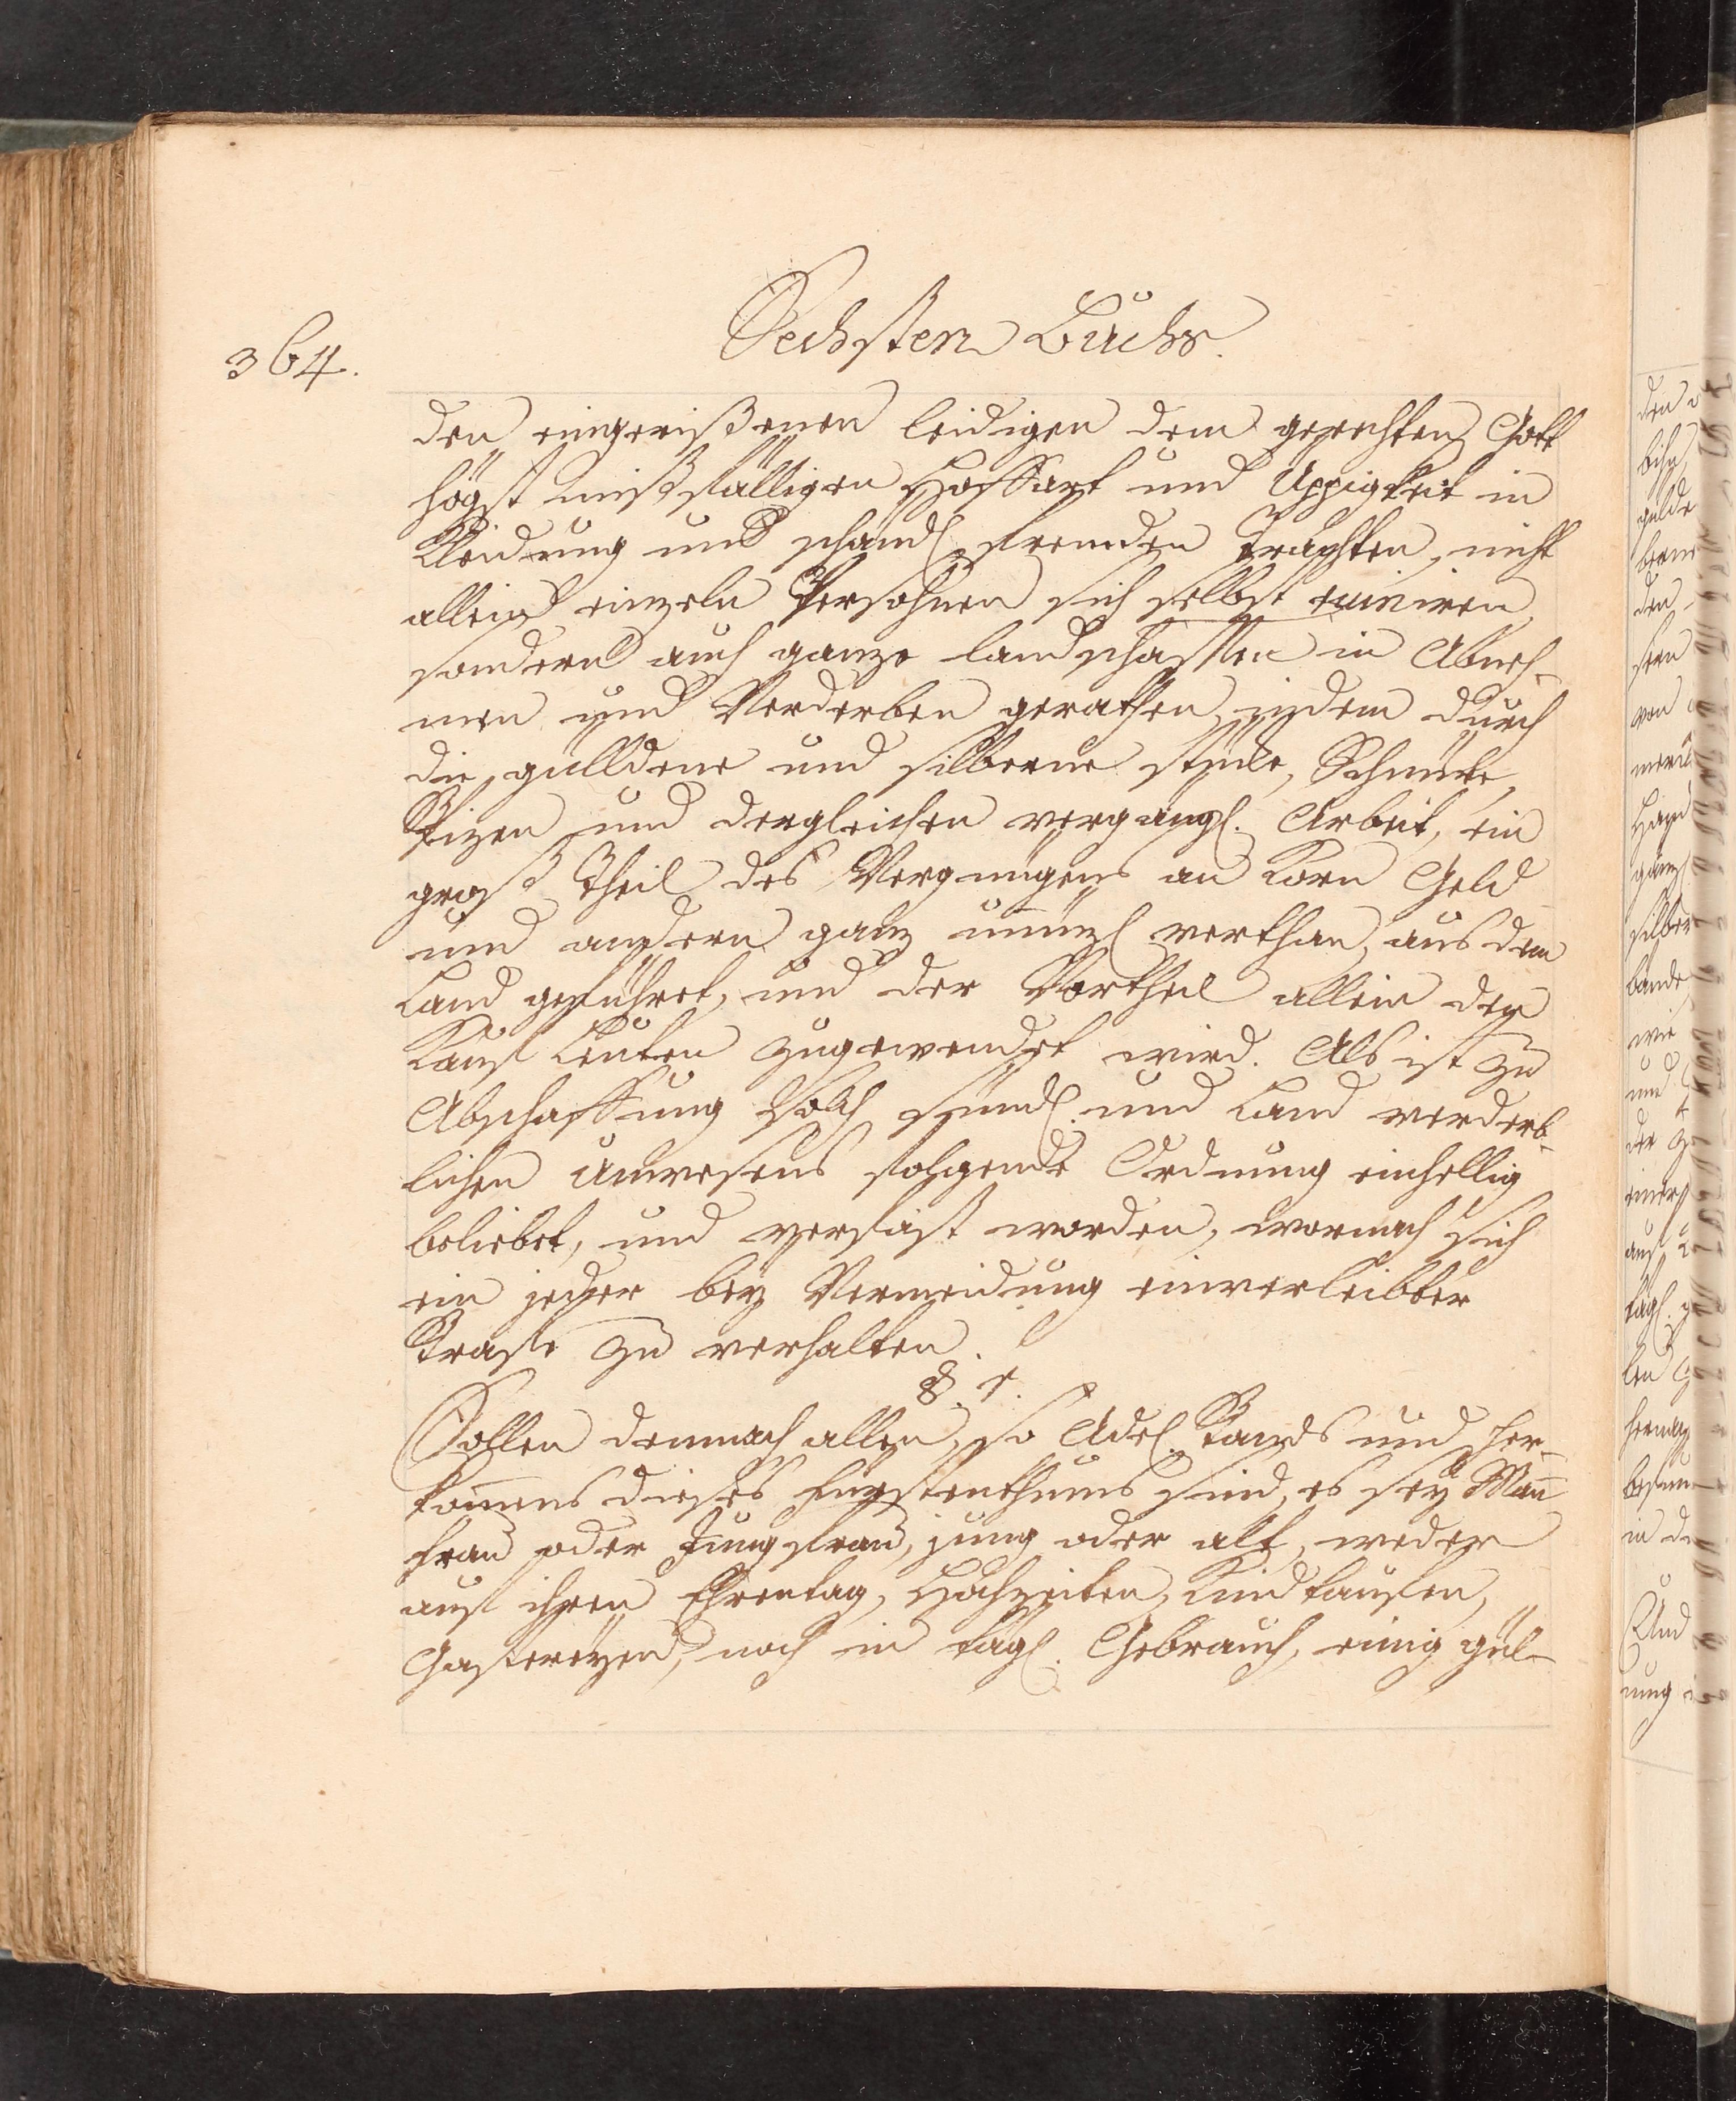 364.
Sechsten Buchs.
den eingerißenen leidigen dem gerechten Gott
högst mißfälligen Hoffart und Üppigkeit in
Kleidung und schändl fremden Trachten, nicht
allein einzeln Persohnen sich selbst ruiniren,
sondern auch ganze landschafften in Abneh-
men und Verderben gerathen, indem durch
die gülldene und silberne stüke, Schnüre,
Spizen und dergleichen vergängl. Arbeit, ein
groß Theil des Vergnügens an Korn Geld
und andern ganz unnüzl verthan, aus dem
Land geführet, und der Vortheil allein den
Kauf Leuten zugewendet wird. Als ist zu
Abschaffung solch sündl. und Land verderb-
lichen Unwesens folgende Ordnung einhellig
beliebet, und verfast worden, wornach sich
ein jeder bey Vermeidung einverleibter
Strafe zu verhalten.
§. 1.
Sollen demnach allen, so Adel. Stands und Her-
kom̄ens dieses Fürstenthums sind, es sey Man̄
Frau oder Jungfrau, jung oder alt, weder
auf ihren Ehrentag, Hochzeiten, Kindtaufen,
Gastereyen, noch in tägl. Gebrauch, einig gül-